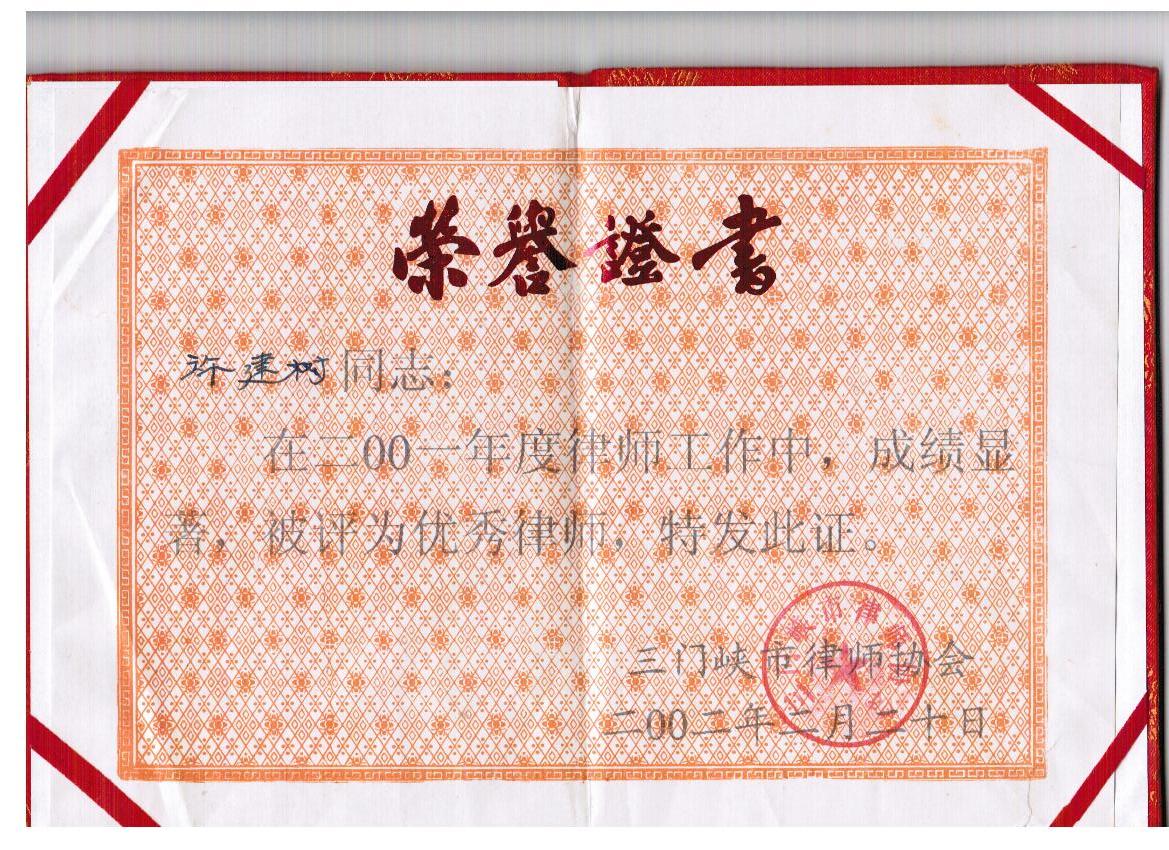 荣譽證書
许建树同志：
在二00一年度律师工作中，成绩显
著，被评为优秀律师，特发此证。
三门峡市律师协会
二00二年二月二十日